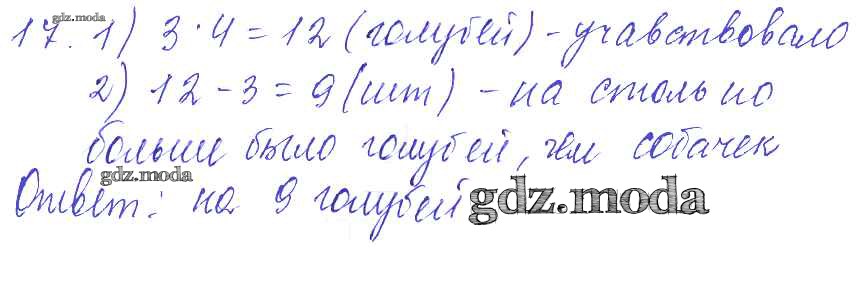 gdz.moda
17. 1) 3 · 4 = 12 (голубей) - учавствовало
2) 12 - 3 = 9 (шт) - на столько
больше было голубей, чем собачек
gdz.moda
Ответ: на 9 голубей
gdz.moda